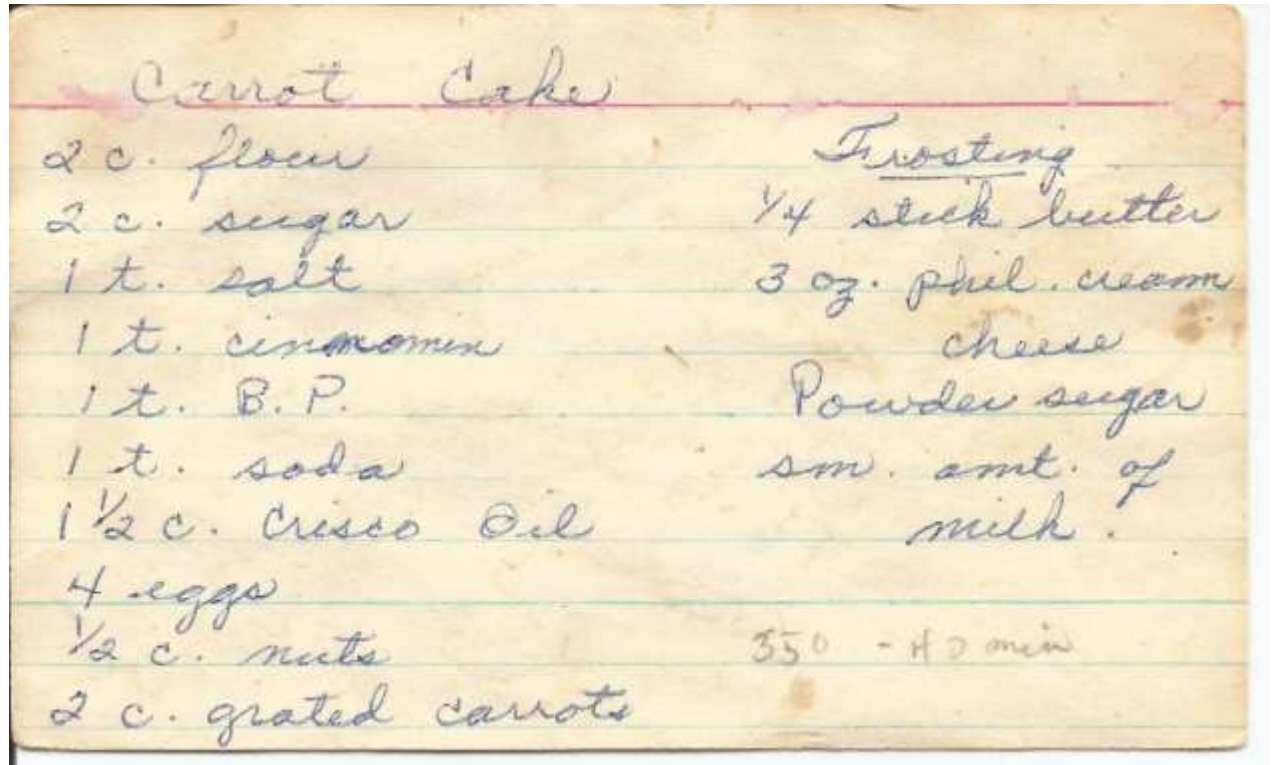 Carrot Cake
2 c. flour
2 c. sugar
1 t. salt
1 t. cinnomin
1 t. B.P.
1 t. soda
1 1/2 c. Crisco Oil
4 eggs
1/2 c. nuts
2 c. grated carrots
Frosting
1/4 stick butter
3 oz. phil. cream
cheese
Powder sugar
sm. amt. of
milk.
350 - 40 min